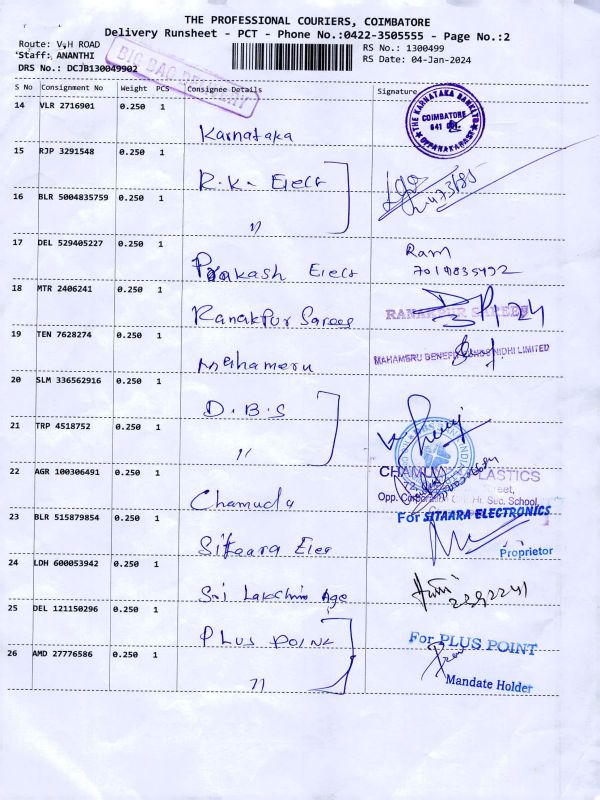 THE PROFESSIONAL COURIERS, COIMBATORE
Delivery Runsheet - PCT - Phone No.:0422-3505555 - Page No.:2
Route: V.H ROAD
RS No.: 1300499
Staff: ANANTHI
RS Date: 04-Jan-2024
DRS No.: DCJB130049902
BIG BAG DELIVERY
S No Consignment No Weight PCS Consignee Details Signature
14 VLR 2716901 0.250 1
Karnataka
THE KARNATAKA BANK LTD
COIMBATORE
641
15 RJP 3291548 0.250 1
R.K. Elect
16 BLR 5004835759 0.250 1
"
17 DEL 529405227 0.250 1
Prakash Elect
Ram
18 MTR 2406241 0.250 1
Ranakpur Sarees
RANAKPUR SAREES
19 TEN 7628274 0.250 1
Mahameru
MAHAMERU BENEFIT FUNDS NIDHI LIMITED
20 SLM 336562916 0.250 1
D.B.S
21 TRP 4518752 0.250 1
"
22 AGR 100306491 0.250 1
Chamuda
PLASTICS
Opp. Corporation Hr. Sec. School,
23 BLR 515879854 0.250 1
Sitaara Elec
For SITAARA ELECTRONICS
Proprietor
24 LDH 600053942 0.250 1
Sri Lakshmi Age
25 DEL 121150296 0.250 1
PLUS POINT
For PLUS POINT
26 AMD 27776586 0.250 1
"
Mandate Holder